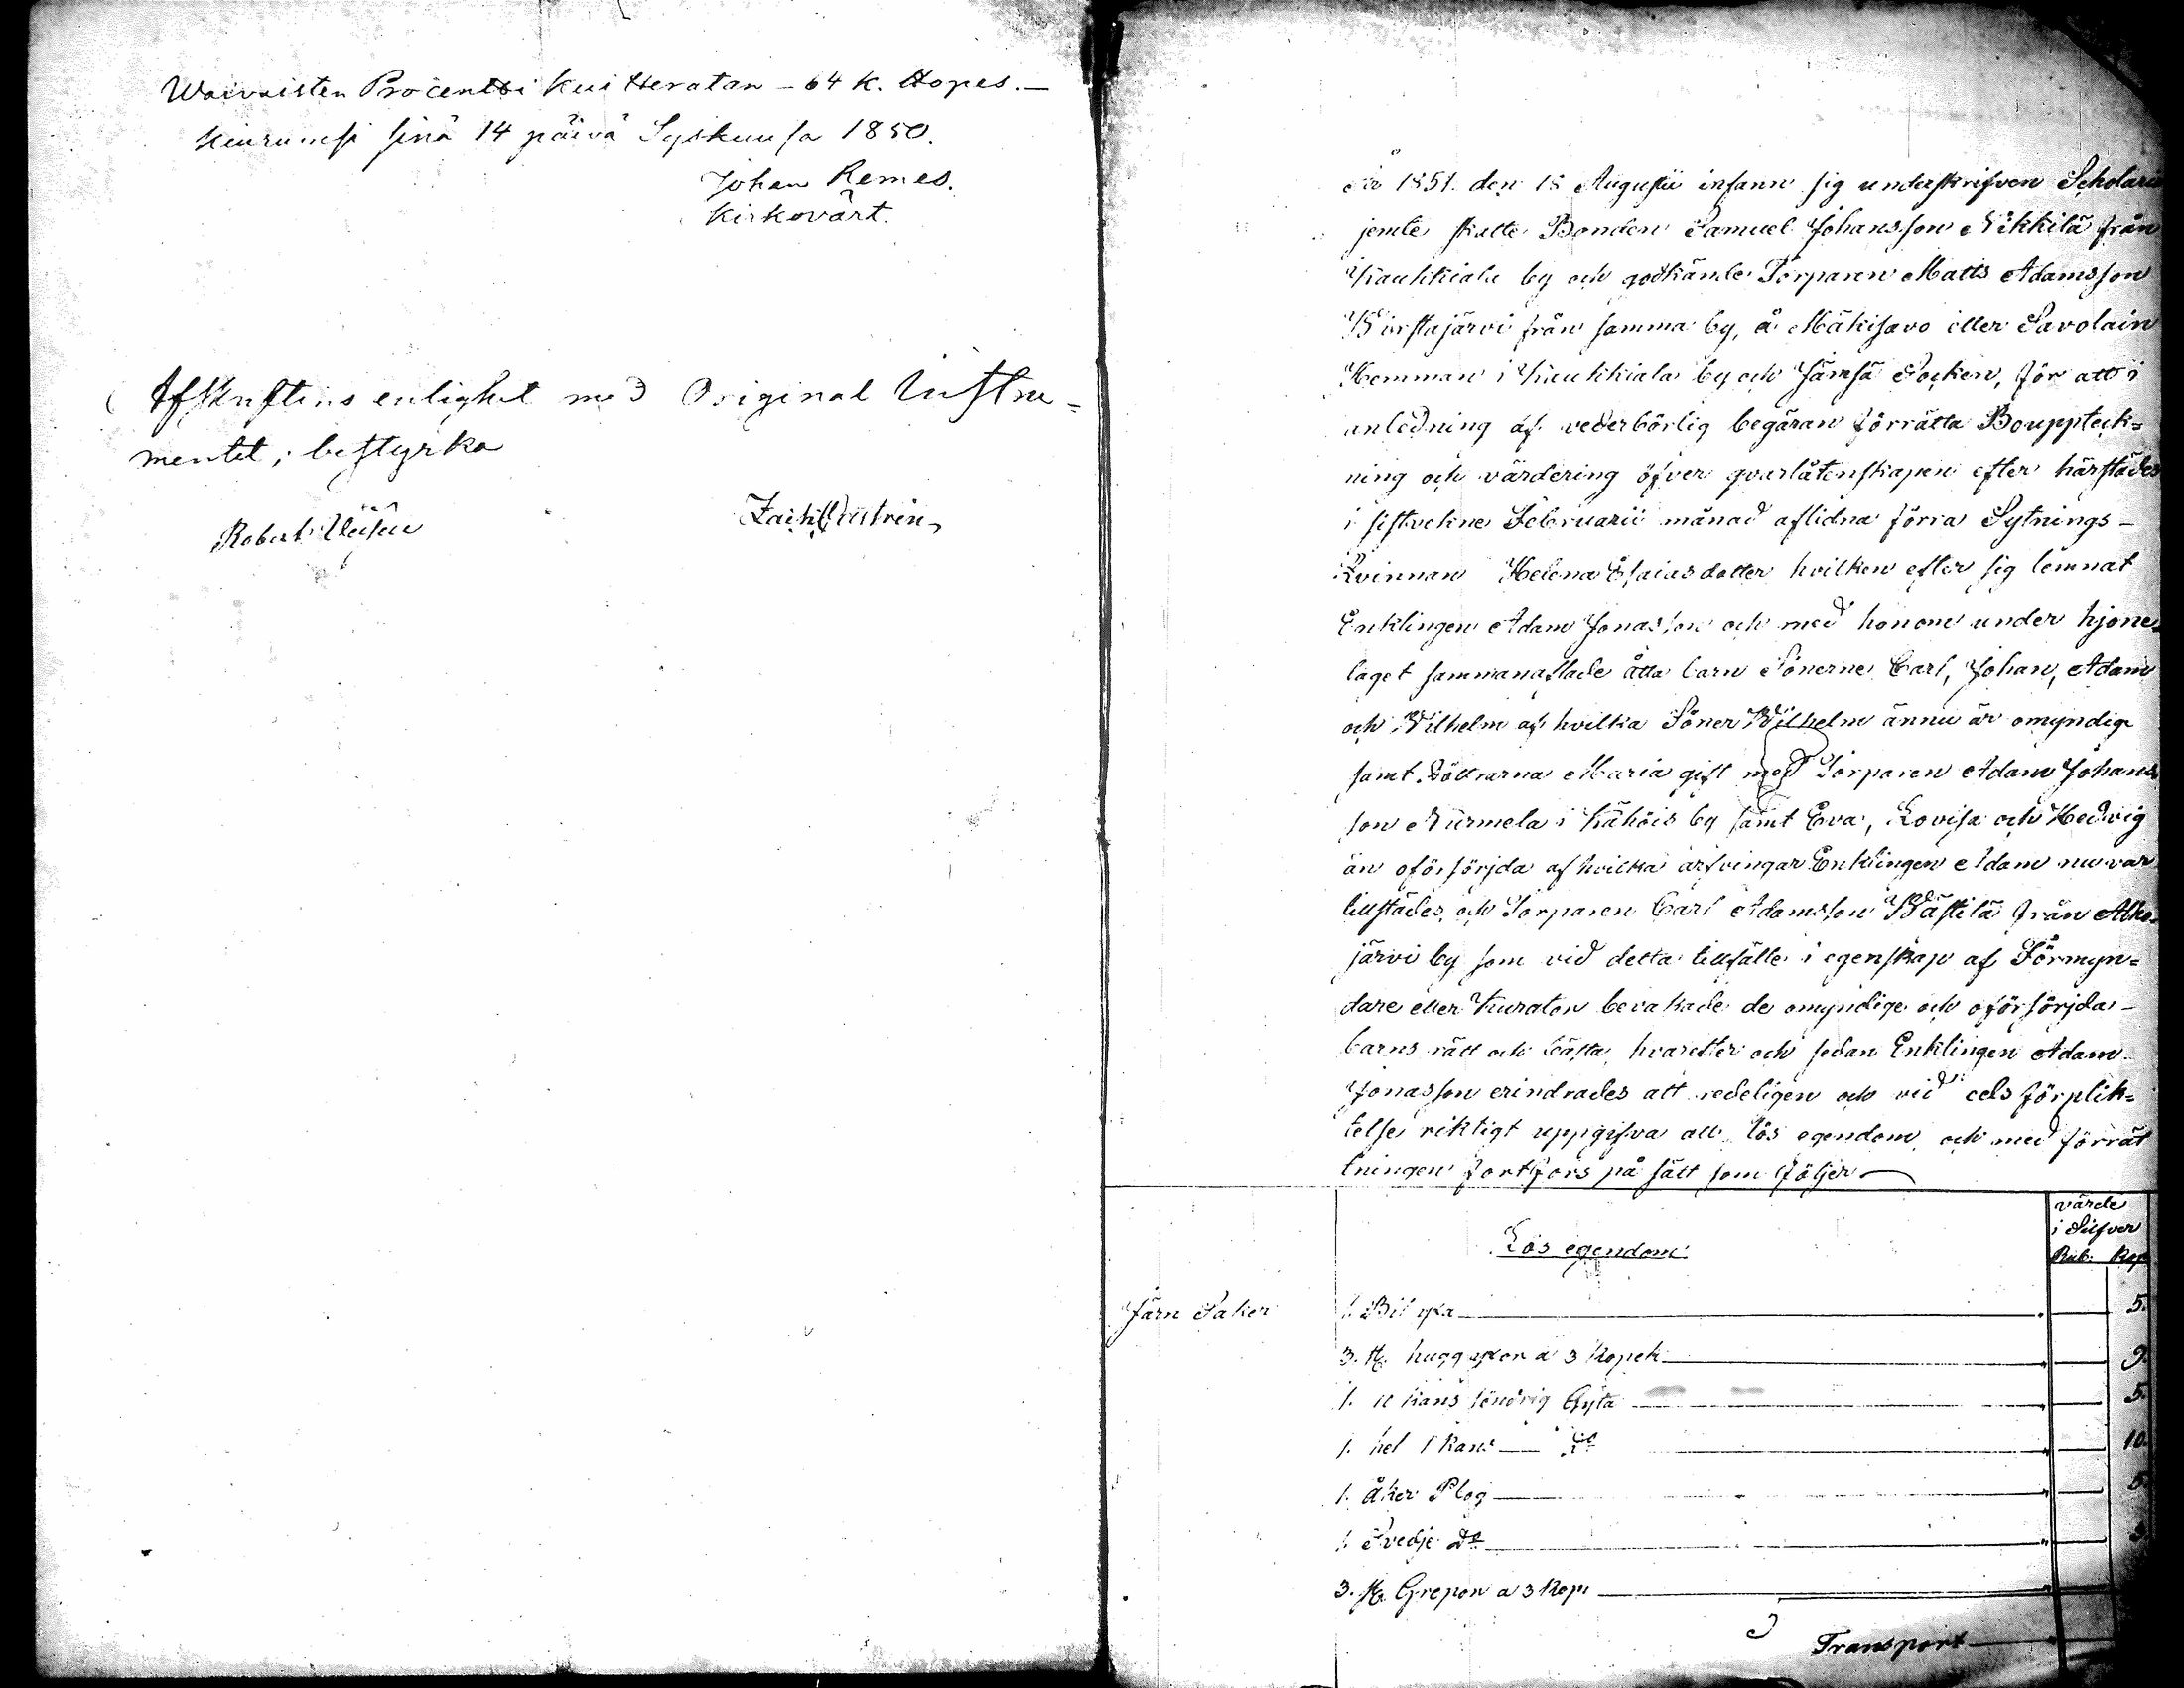 Waivaisten Procentti kuitteratan – 64 K. Hopes. –
Keurunsi sinä 14 päivä Syskuusa 1850.
Johan Remes.
Kirkovärt.
Afskriftens enlighet med Original Instru=
mentet, bestyrka
Robert
År 1851. den 18 Augustii infann sig underskrifven Scholaris
jemte skatte Bonden Samuel Johansson Nikkilä från
Kaukkiala by och godkände Torparen Matts Adamsson
från samma by, å Mäkisavo eller Savolain
Hemman i Kaukkiala by och Jämsä Socken, för att i
anledning af vederbörlig begäran förrätta Boupptek=
ning och värdering öfver qvarlåtenskapen efter härstädes
i sistvekne Februarii månad aflidna förra Sytnings –
Kvinnan Helena Esaiasdotter hvilken efter sig lemnat
Enklingen Adam Jonasson och med honom under hjone=
laget sammanaflade åtta barn Sönerne Carl, Johan, Adam
och Wilhelm af hvilka Söner Wilhelm ännu är omyndig
samt Döttrarna Maria gift med Torparen Adam Johans
son Nurmela i Kähöis by samt Eva, Lovisa och Hedvig
än oförsörjda af hvilka arfvingar Enklingen Adam nu var
tillstädes, och Torparen Carl Adamsson från Alho=
järvi by som vid detta tillfälle i egenskap af Förmyn=
dare eller Kurator bevakade de omyndige och oförsörjda –
barns rätt och bästa, hvarefter och sedan Enklingen Adam
Jonasson erindrades att redeligen och vid eds förplik=
telse riktigt uppgifva all lös egendom och med förrät
tningen fortfors på sätt som följer
värde
i Silfver
Lös egendom
Rub. Kop
Järn Saker 1. Bil yxa 5.
3. St. hugg yxor a 3 Kopek 9.
1. 11 kans söndrig Gryta 5.
1. hel 1 Kans do 10.
1. Åker Plog 5
1. Svedje do 3.
3. St. Grepon a 3 Kop.
Transport